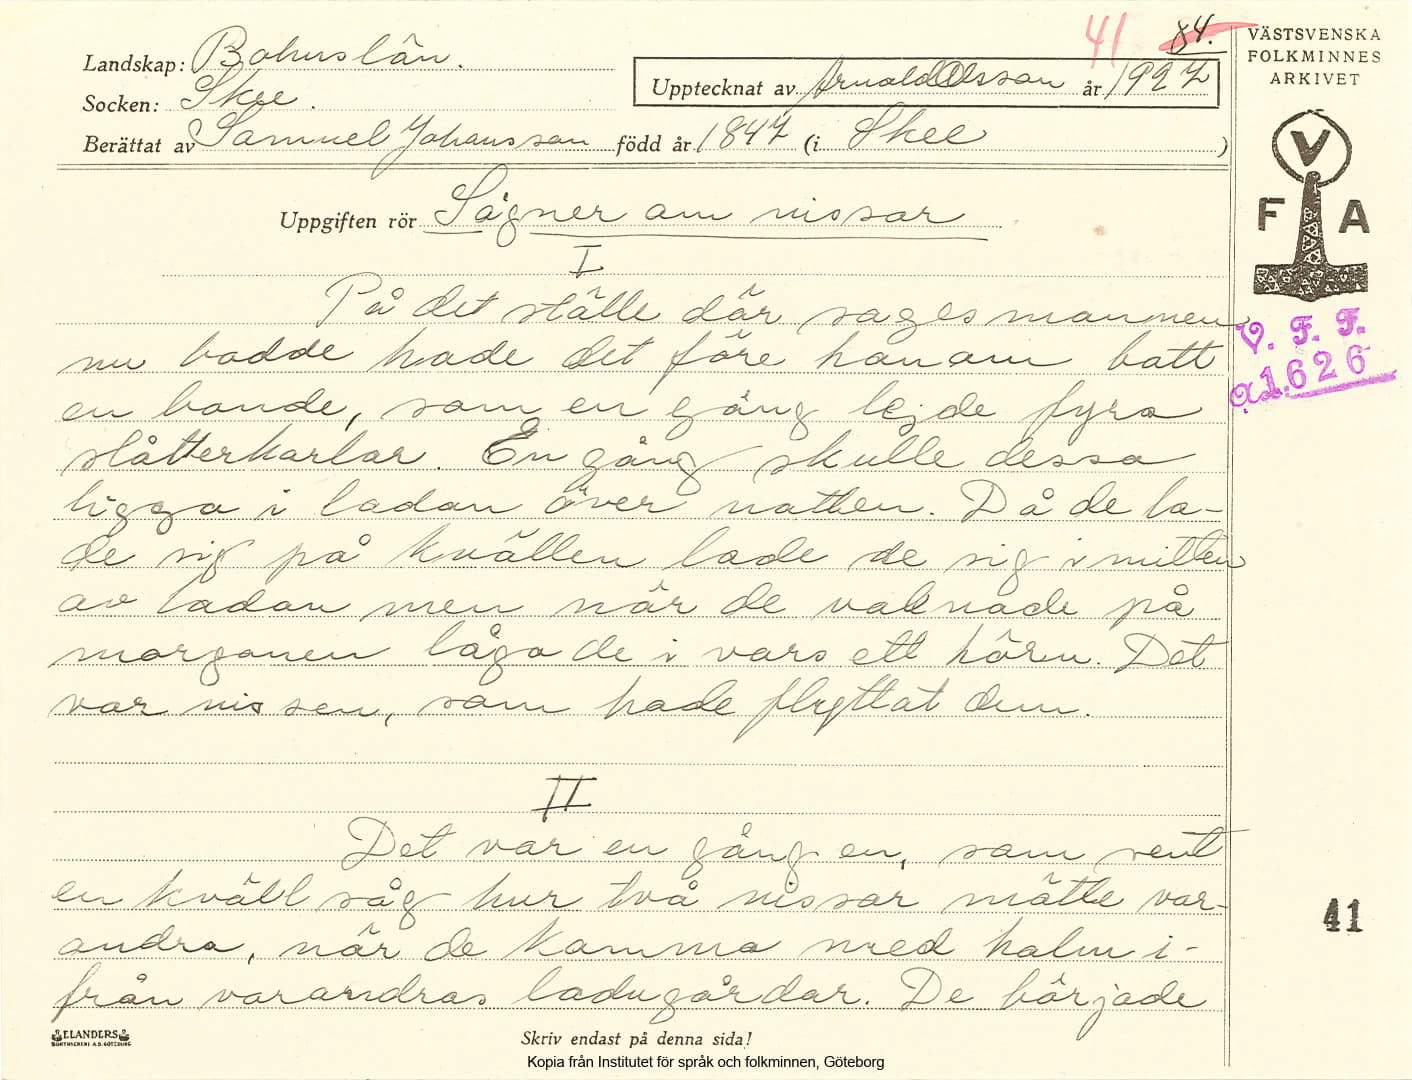 41 84.
Landskap: Bohuslän.
Socken: Skee.
Upptecknat av Arnold Olsson år 1927
Berättat av Samuel Johansson född år 1847 (i Skee )
VÄSTSVENSKA
FOLKMINNES
ARKIVET
V
F A
V. F. F.
1626
Uppgiften rör Sägner om nissar
I
På det ställe där sagesmannen
nu bodde hade det före honom bott
en bonde, som en gång lejde fyra
slåtterkarlar. En gång skulle dessa
ligga i ladan över natten. Då de la-
de sig på kvällen lade de sig i mitten
av ladan men när de vaknade på
morgonen lågo de i vars ett hörn. Det
var nissen, som hade flyttat dem.
II
Det var en gång en, som sent
en kväll såg hur två nissar mötte var-
andra, när de kommo med halm i-
från varandras ladugårdar. De började
41
ELANDERS
BOKTRYCKERI A.B. GÖTEBORG
Skriv endast på denna sida!
Kopia från Institutet för språk och folkminnen, Göteborg